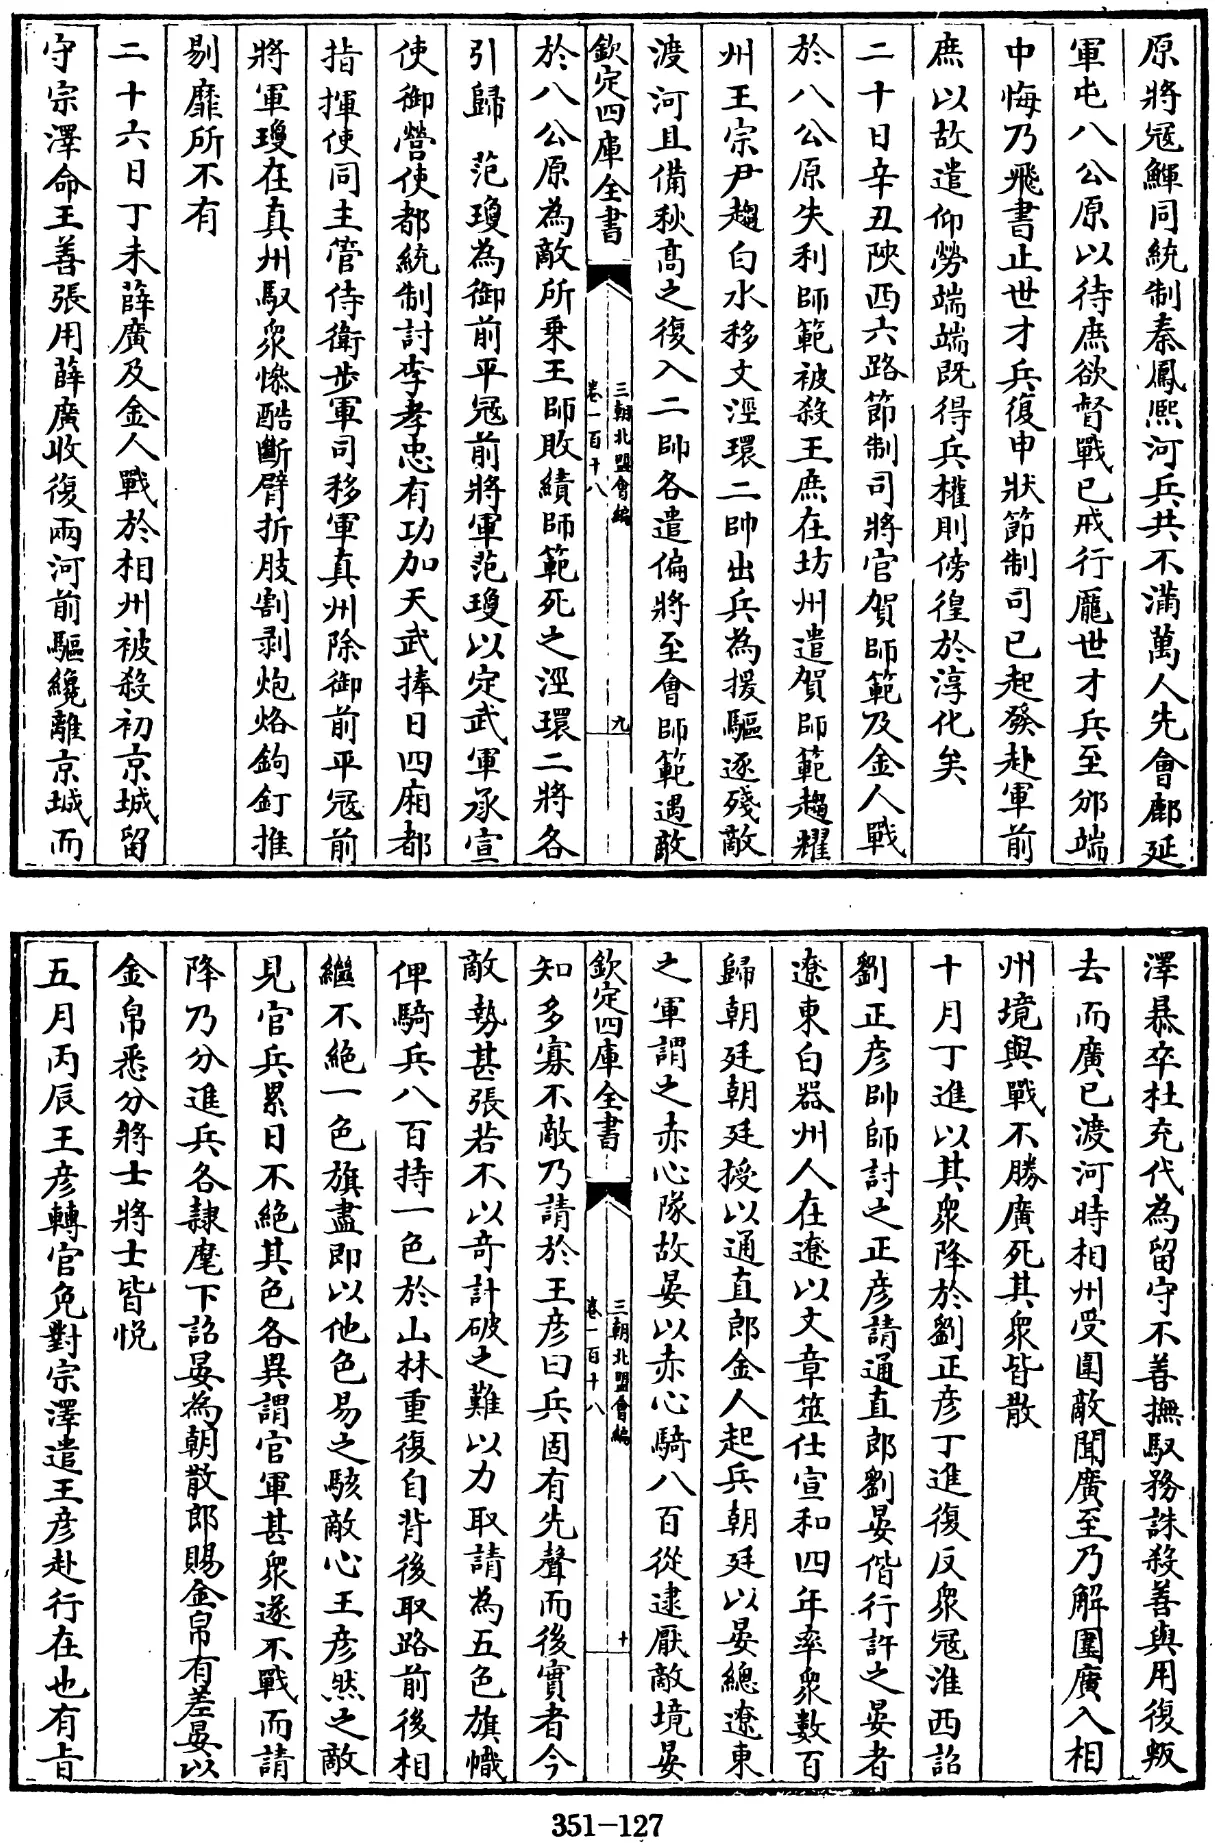 原將冦鯶同統制秦鳳熙河兵共不滿萬人先會鄜延
軍屯八公原以待庶欲督戰已戒行龎世才兵至邠端
中悔乃飛書止世才兵復申狀節制司已起發赴軍前
庶以故遣仰勞端端既得兵權則傍徨於淳化矣
二十日辛丑陜西六路節制司將官賀師範及金人戰
於八公原失利師範被殺王庶在坊州遣賀師範趨耀
州王宗尹趨白水移文涇環二帥出兵為援驅逐殘敵
渡河且備秋髙之復入二帥各遣偏將至會師範遇敵
欽定四庫全書
三朝北盟會編
卷一百十八
九
於八公原為敵所乗王師敗績師範死之涇環二將各
引歸 范瓊為御前平冦前將軍范瓊以定武軍承宣
使御營使都統制討李孝忠有功加天武捧日四廂都
指揮使同主管侍衛步軍司移軍真州除御前平冦前
將軍瓊在真州馭衆慘酷斷臂折肢割剥炮烙鉤釘推
剔靡所不有
二十六日丁未薛廣及金人戰於相州被殺初京城留
守宗澤命王善張用薛廣收復兩河前驅纔離京城而
澤暴卒杜充代為留守不善撫馭務誅殺善與用復叛
去而廣已渡河時相州受圍敵聞廣至乃解圍廣入相
州境與戰不勝廣死其衆皆散
十月丁進以其衆降於劉正彦丁進復反衆冦淮西詔
劉正彦帥師討之正彦請通直郎劉晏偕行許之晏者
遼東白器州人在遼以文章筮仕宣和四年率衆數百
歸朝廷朝廷授以通直郎金人起兵朝廷以晏總遼東
之軍謂之赤心隊故晏以赤心騎八百從逮厭敵境晏
欽定四庫全書
三朝北盟會編
卷一百十八
十
知多寡不敵乃請於王彦曰兵固有先聲而後實者今
敵勢甚張若不以奇計破之難以力取請為五色旗幟
俾騎兵八百持一色於山林重復自背後取路前後相
繼不絶一色旗盡即以他色易之駭敵心王彦然之敵
見官兵累日不絶其色各異謂官軍甚衆遂不戰而請
降乃分進兵各隷麾下詔晏為朝散郎賜金帛有差晏以
金帛悉分將士將士皆悦
五月丙辰王彦轉官免對宗澤遣王彦赴行在也有旨
351-127